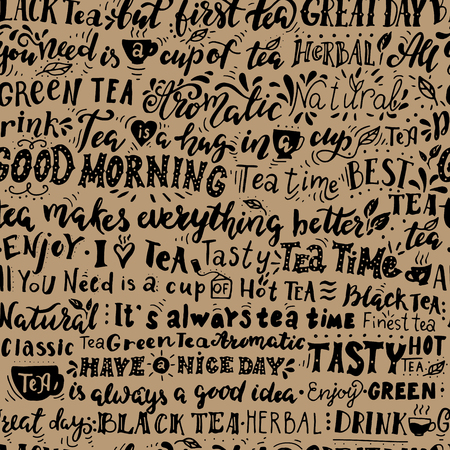 BLACK TEA but first tea GREAT DAY B
you need is a cup of tea HERBAL All
GREEN TEA Aromatic Natural
Drink Tea is a hug in a cup TEA
GOOD MORNING Tea time BEST
tea makes everything better TEA
ENJOY I TEA Tasty TEA TIME tea
All YOU Need is a cup OF HOT TEA A
Natural: It's always tea time BLack TEA:
Classic Tea Green Tea Aromatic Finest tea
HAVE a NICE DAY TASTY HOT TEA
TEA is always a good idea Enjoy GREEN
Great day: BLACK TEA HERBAL DRINK